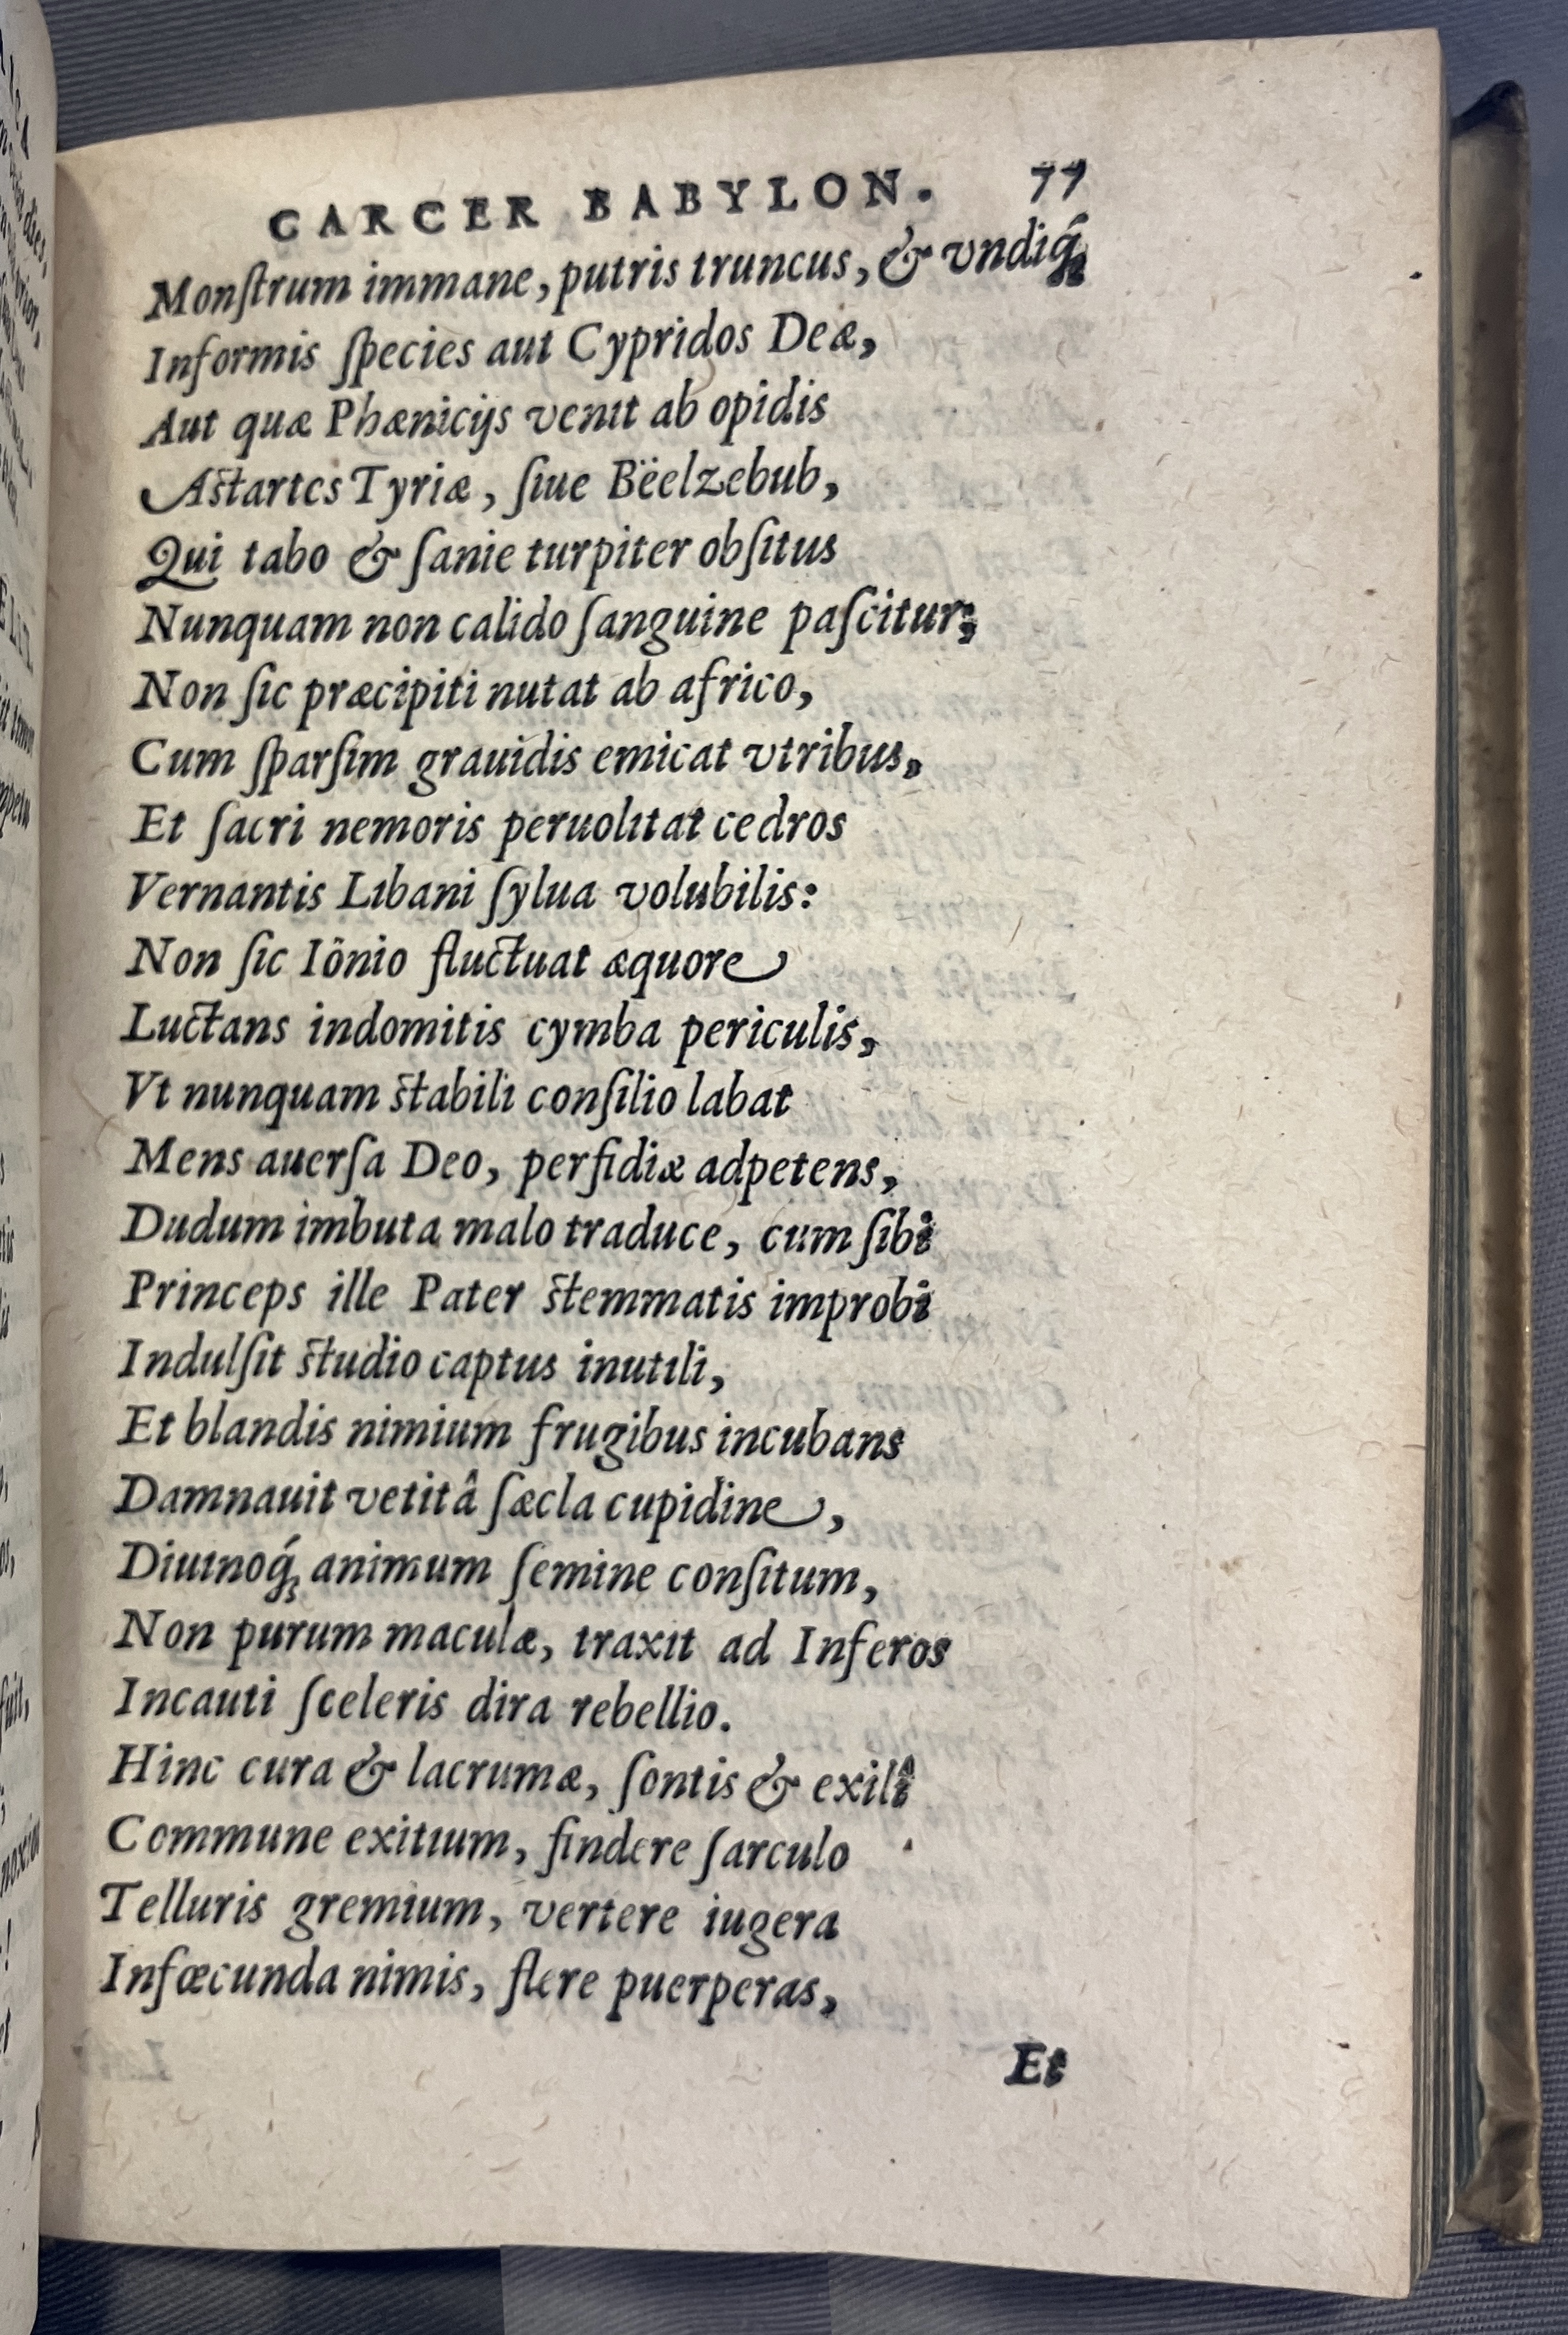 CARCER BABYLON. 77
Monſtrum immane, putris truncus, & vndiq́;
Informis ſpecies aut Cypridos Deæ,
Aut quæ Phænicijs venit ab opidis
Aſtartes Tyriæ, ſiue Bëelzebub,
Qui tabo & ſanie turpiter obſitus
Nunquam non calido ſanguine paſcitur;
Non ſic præcipiti nutat ab africo,
Cum ſparſim grauidis emicat vtribus,
Et ſacri nemoris peruolitat cedros
Vernantis Libani ſylua volubilis:
Non ſic Iönio fluctuat æquore
Luctans indomitis cymba periculis,
Vt nunquam ſtabili conſilio labat
Mens auerſa Deo, perfidiæ adpetens,
Dudum imbuta malo traduce, cum ſibi
Princeps ille Pater ſtemmatis improbi
Indulſit ſtudio captus inutili,
Et blandis nimium frugibus incubans
Damnauit vetitâ ſæcla cupidine,
Diuinoq́; animum ſemine conſitum,
Non purum maculæ, traxit ad Inferos
Incauti ſceleris dira rebellio.
Hinc cura & lacrumæ, ſontis & exilî
Commune exitium, findere ſarculo
Telluris gremium, vertere iugera
Infœcunda nimis, flere puerperas,
Et